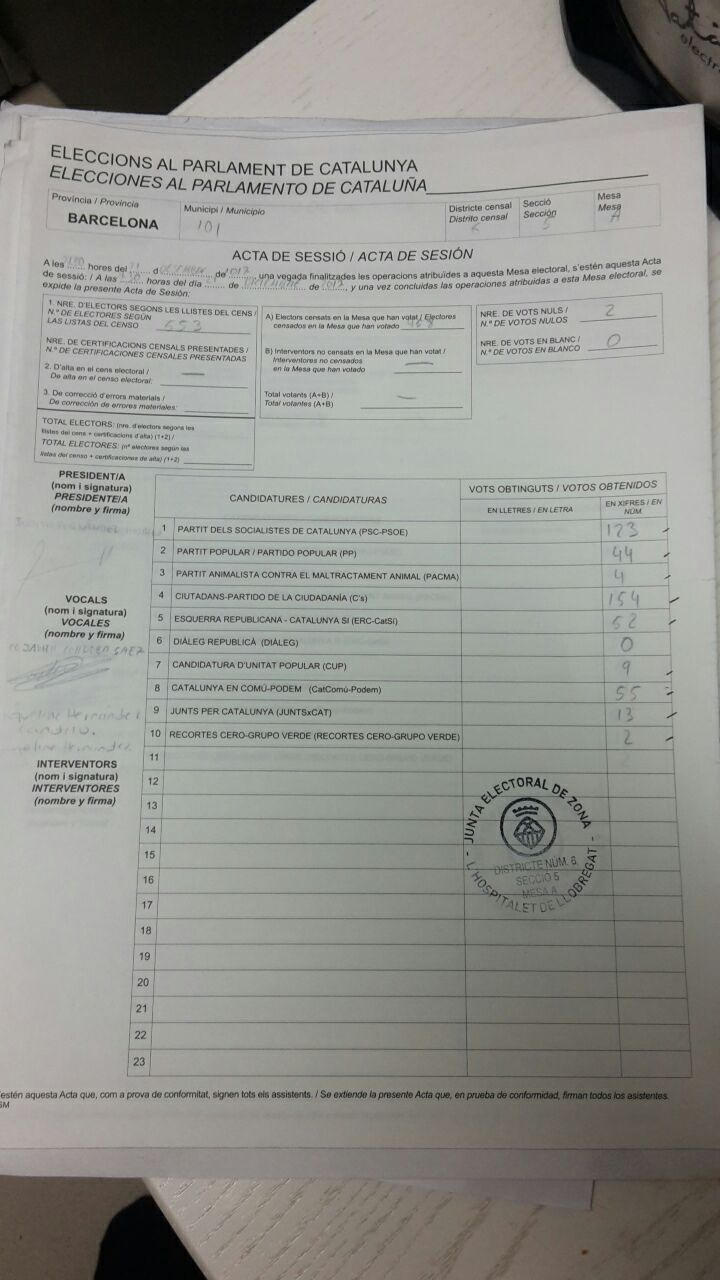 ELECCIONS AL PARLAMENT DE CATALUNYA
ELECCIONES AL PARLAMENTO DE CATALUÑA
Província / Provincia
BARCELONA
Municipi / Municipio
101
Districte censal
Distrito censal
6
Secció
Sección
5
Mesa
Mesa
A
ACTA DE SESSIÓ / ACTA DE SESIÓN
A les hores del 21 d de 2017, una vegada finalitzades les operacions atribuïdes a aquesta Mesa electoral, s'estén aquesta Acta
de sessió: / A las horas del día de de 2017, y una vez concluidas las operaciones atribuidas a esta Mesa electoral, se
expide la presente Acta de Sesión:
1. NRE. D'ELECTORS SEGONS LES LLISTES DEL CENS /
N.º DE ELECTORES SEGÚN
LAS LISTAS DEL CENSO 553
NRE. DE CERTIFICACIONS CENSALS PRESENTADES /
N.º DE CERTIFICACIONES CENSALES PRESENTADAS
2. D'alta en el cens electoral /
De alta en el censo electoral: —
3. De correcció d'errors materials /
De corrección de errores materiales:
TOTAL ELECTORS: (nre. d'electors segons les
llistes del cens + certificacions d'alta) (1+2) /
TOTAL ELECTORES: (nº electores según las
listas del censo + certificaciones de alta) (1+2)
A) Electors censats en la Mesa que han votat / Electores
censados en la Mesa que han votado
B) Interventors no censats en la Mesa que han votat /
Interventores no censados
en la Mesa que han votado —
Total votants (A+B) /
Total votantes (A+B) —
NRE. DE VOTS NULS /
N.º DE VOTOS NULOS 2
NRE. DE VOTS EN BLANC /
N.º DE VOTOS EN BLANCO 0
PRESIDENT/A
(nom i signatura)
PRESIDENTE/A
(nombre y firma)
VOCALS
(nom i signatura)
VOCALES
(nombre y firma)
INTERVENTORS
(nom i signatura)
INTERVENTORES
(nombre y firma)
CANDIDATURES / CANDIDATURAS
VOTS OBTINGUTS / VOTOS OBTENIDOS
EN LLETRES / EN LETRA
EN XIFRES / EN NÚM.
1 PARTIT DELS SOCIALISTES DE CATALUNYA (PSC-PSOE) 123
2 PARTIT POPULAR / PARTIDO POPULAR (PP) 44
3 PARTIT ANIMALISTA CONTRA EL MALTRACTAMENT ANIMAL (PACMA) 4
4 CIUTADANS-PARTIDO DE LA CIUDADANÍA (C's) 154
5 ESQUERRA REPUBLICANA - CATALUNYA SÍ (ERC-CatSí) 52
6 DIÀLEG REPUBLICÀ (DIÀLEG) 0
7 CANDIDATURA D'UNITAT POPULAR (CUP) 9
8 CATALUNYA EN COMÚ-PODEM (CatComú-Podem) 55
9 JUNTS PER CATALUNYA (JUNTSxCAT) 13
10 RECORTES CERO-GRUPO VERDE (RECORTES CERO-GRUPO VERDE) 2
11
12
13
14
15
16
17
18
19
20
21
22
23
JUNTA ELECTORAL DE ZONA
DISTRICTE NÚM. 6
SECCIÓ 5
MESA A
L'HOSPITALET DE LLOBREGAT
estén aquesta Acta que, com a prova de conformitat, signen tots els assistents. / Se extiende la presente Acta que, en prueba de conformidad, firman todos los asistentes.